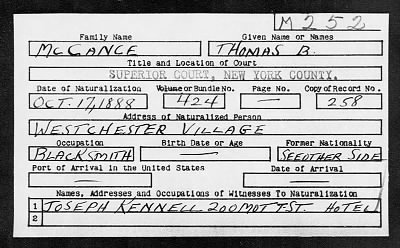 M 252
Family Name Given Name or Names
McCANCE THOMAS B.
Title and Location of Court
SUPERIOR COURT, NEW YORK COUNTY.
Date of Naturalization Volume or Bundle No. Page No. Copy of Record No.
OCT. 17, 1888 424 — 258
Address of Naturalized Person
WESTCHESTER VILLAGE
Occupation Birth Date or Age Former Nationality
BLACKSMITH — SEE OTHER SIDE
Port of Arrival in the United States Date of Arrival
— —
Names, Addresses and Occupations of Witnesses To Naturalization
1 JOSEPH KENNELL 200 MOTT ST. HOTEL
2